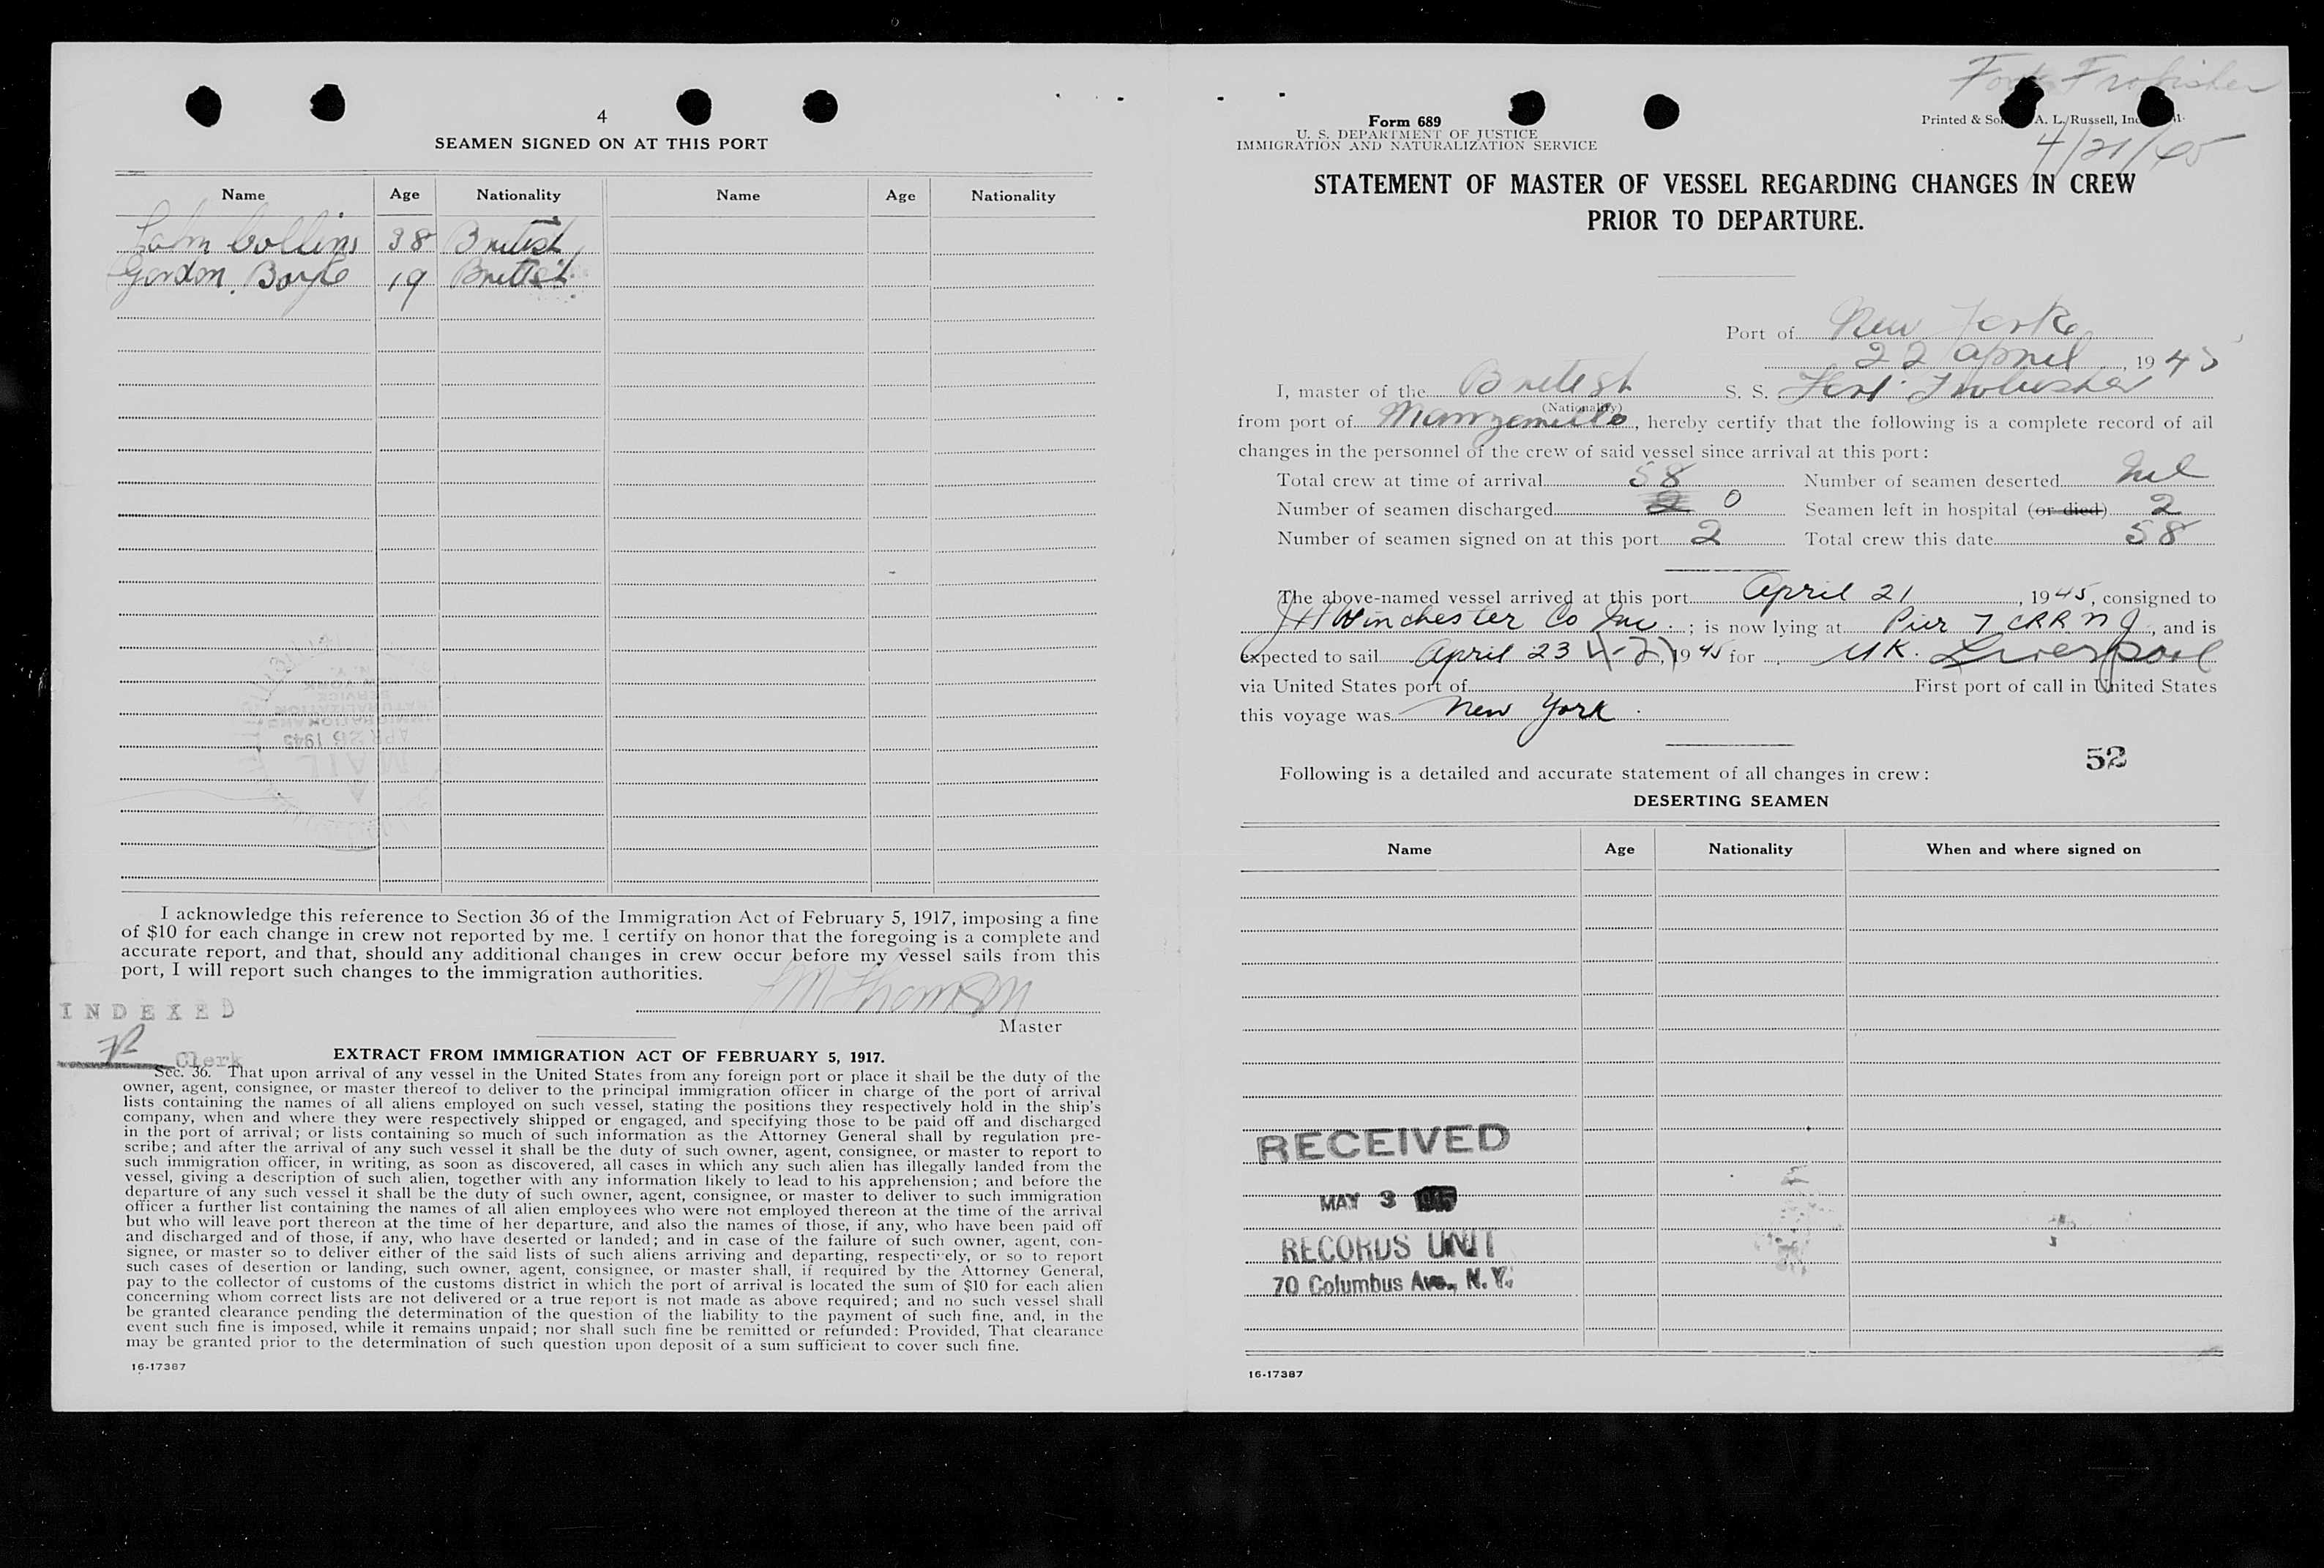 4
SEAMEN SIGNED ON AT THIS PORT
Name Age Nationality Name Age Nationality
John Collins 38 British
Gordon Boyle 19 British
I acknowledge this reference to Section 36 of the Immigration Act of February 5, 1917, imposing a fine
of $10 for each change in crew not reported by me. I certify on honor that the foregoing is a complete and
accurate report, and that, should any additional changes in crew occur before my vessel sails from this
port, I will report such changes to the immigration authorities.
Thomson
Master
INDEXED
Clerk
EXTRACT FROM IMMIGRATION ACT OF FEBRUARY 5, 1917.
Sec. 36. That upon arrival of any vessel in the United States from any foreign port or place it shall be the duty of the
owner, agent, consignee, or master thereof to deliver to the principal immigration officer in charge of the port of arrival
lists containing the names of all aliens employed on such vessel, stating the positions they respectively hold in the ship's
company, when and where they were respectively shipped or engaged, and specifying those to be paid off and discharged
in the port of arrival; or lists containing so much of such information as the Attorney General shall by regulation pre-
scribe; and after the arrival of any such vessel it shall be the duty of such owner, agent, consignee, or master to report to
such immigration officer, in writing, as soon as discovered, all cases in which any such alien has illegally landed from the
vessel, giving a description of such alien, together with any information likely to lead to his apprehension; and before the
departure of any such vessel it shall be the duty of such owner, agent, consignee, or master to deliver to such immigration
officer a further list containing the names of all alien employees who were not employed thereon at the time of the arrival
but who will leave port thereon at the time of her departure, and also the names of those, if any, who have been paid off
and discharged and of those, if any, who have deserted or landed; and in case of the failure of such owner, agent, con-
signee, or master so to deliver either of the said lists of such aliens arriving and departing, respectively, or so to report
such cases of desertion or landing, such owner, agent, consignee, or master shall, if required by the Attorney General,
pay to the collector of customs of the customs district in which the port of arrival is located the sum of $10 for each alien
concerning whom correct lists are not delivered or a true report is not made as above required; and no such vessel shall
be granted clearance pending the determination of the question of the liability to the payment of such fine, and, in the
event such fine is imposed, while it remains unpaid; nor shall such fine be remitted or refunded: Provided, That clearance
may be granted prior to the determination of such question upon deposit of a sum sufficient to cover such fine.
16-17387
Fort Frobisher
Form 689
U. S. DEPARTMENT OF JUSTICE
IMMIGRATION AND NATURALIZATION SERVICE
Printed & A. L. Russell,
4/21/45
STATEMENT OF MASTER OF VESSEL REGARDING CHANGES IN CREW
PRIOR TO DEPARTURE.
Port of New York
22 April, 1945
I, master of the British S. S. Fort Frobisher
(Nationality)
from port of Manzanillo, hereby certify that the following is a complete record of all
changes in the personnel of the crew of said vessel since arrival at this port:
Total crew at time of arrival 58 Number of seamen deserted Nil
Number of seamen discharged 2 0 Seamen left in hospital (or died) 2
Number of seamen signed on at this port 2 Total crew this date 58
The above-named vessel arrived at this port April 21, 1945, consigned to
J H Winchester Co Inc.; is now lying at Pier 7 CRR N J, and is
expected to sail April 23 1945 for UK. Liverpool
via United States port of First port of call in United States
this voyage was New York.
52
Following is a detailed and accurate statement of all changes in crew:
DESERTING SEAMEN
Name Age Nationality When and where signed on
RECEIVED
MAY 3 1945
RECORDS UNIT
70 Columbus Ave., N. Y.
16-17387